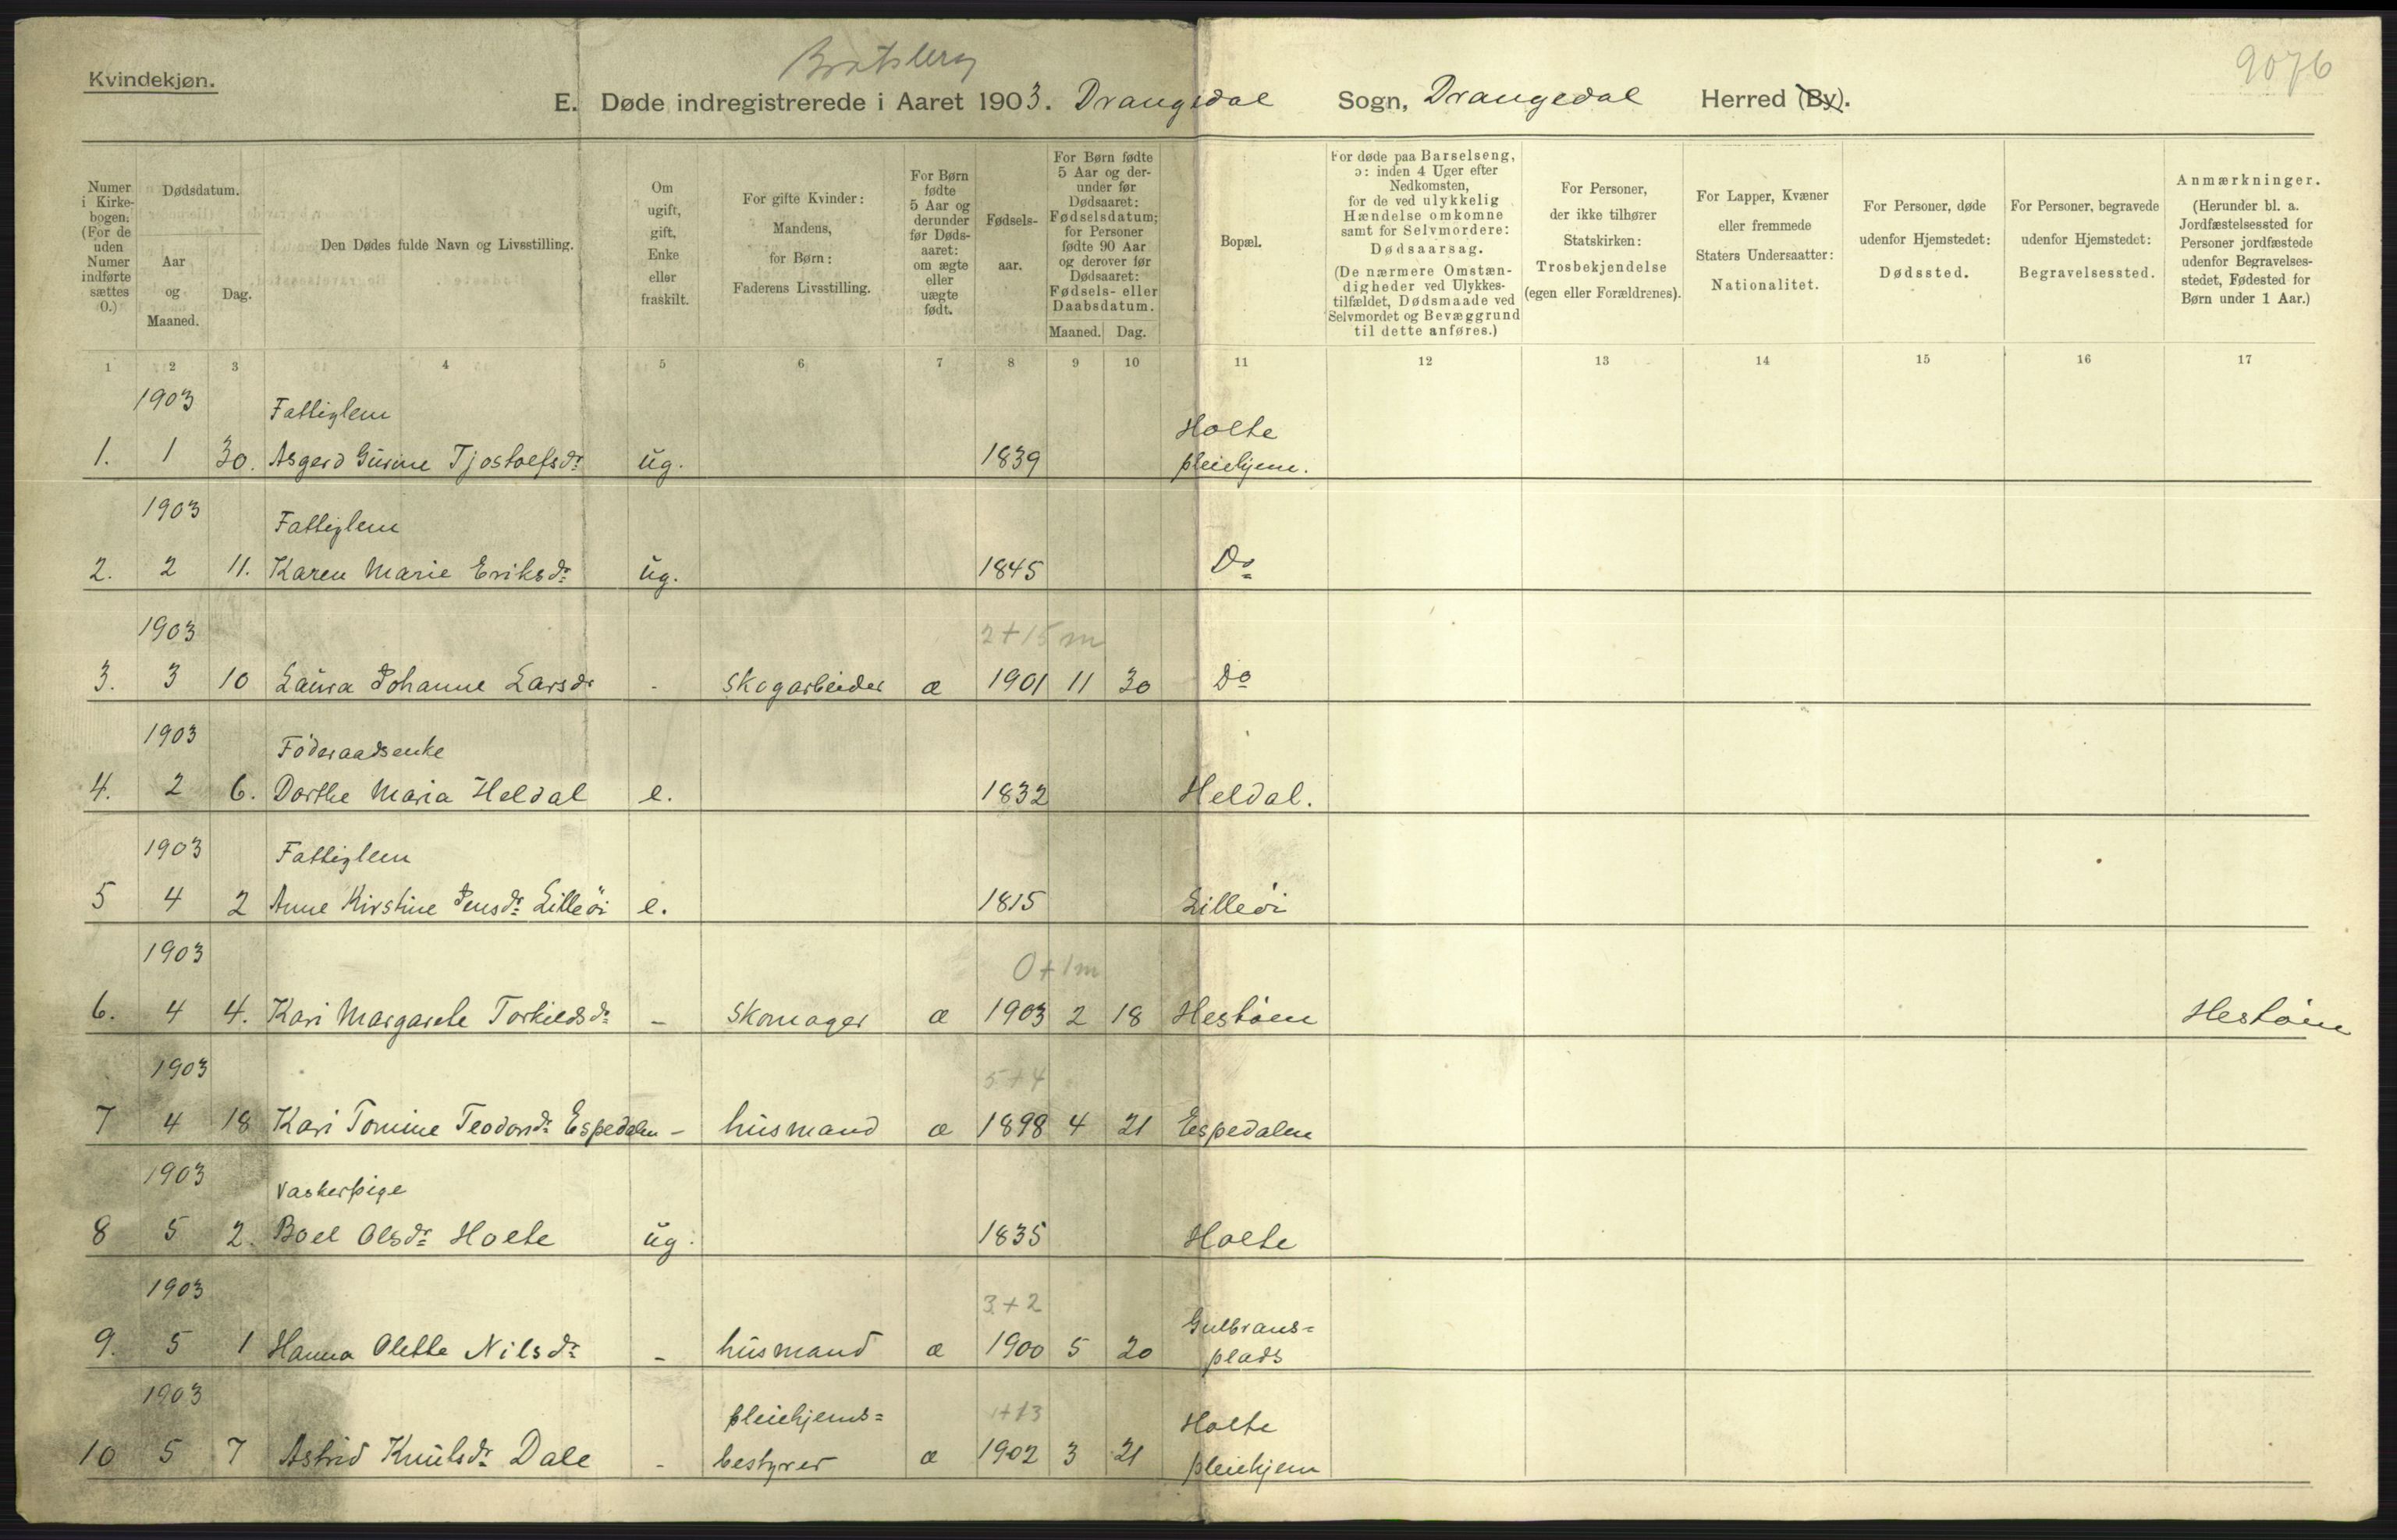 Kvindekjøn.
Bratsberg
9076
E. Døde indregistrerede i Aaret 1903. Drangedal Sogn, Drangedal Herred (By).
Numer i Kirkebogen. (For de uden Numer indførte sættes 0.)
Dødsdatum.
Aar og Maaned.
Dag.
Den Dødes fulde Navn og Livsstilling.
Om ugift, gift, Enke eller fraskilt.
For gifte Kvinder: Mandens, for Børn: Faderens Livsstilling.
For Børn fødte 5 Aar og derunder før Dødsaaret: om ægte eller uægte født.
Fødselsaar.
For Børn fødte 5 Aar og derunder før Dødsaaret: Fødselsdatum; for Personer fødte 90 Aar og derover før Dødsaaret: Fødsels- eller Daabsdatum.
Maaned. Dag.
Bopæl.
For døde paa Barselseng, ɔ: inden 4 Uger efter Nedkomsten, for de ved ulykkelig Hændelse omkomne samt for Selvmordere: Dødsaarsag. (De nærmere Omstændigheder ved Ulykkestilfældet, Dødsmaade ved Selvmordet og Bevæggrund til dette anføres.)
For Personer, der ikke tilhører Statskirken: Trosbekjendelse (egen eller Forældrenes).
For Lapper, Kvæner eller fremmede Staters Undersaatter: Nationalitet.
For Personer, døde udenfor Hjemstedet: Dødssted.
For Personer, begravede udenfor Hjemstedet: Begravelsessted.
Anmærkninger. (Herunder bl. a. Jordfæstelsessted for Personer jordfæstede udenfor Begravelsesstedet, Fødested for Børn under 1 Aar.)
1 2 3 4 5 6 7 8 9 10 11 12 13 14 15 16 17
1903 Fattiglem Holte
1. 1 30. Asgerd Gurine Tjostolfsdr ug. 1839 pleiehjem.
1903 Fattiglem
2. 2 11. Karen Marie Eriksdr ug. 1845 Do
1903 2+15 m
3. 3 10 Laura Johanne Larsdr - Skogarbeider æ 1901 11 30 Do
1903 Föderaadsenke
4. 2 6. Dorthe Maria Heldal e. 1832 Heldal.
1903 Fattiglem
5 4 2 Anne Kirstine Jensdr Lilleöi e. 1815 Lilleöi
1903 0+1m
6. 4 4. Kari Margarete Torkildsdr - Skomager æ 1903 2 18 Hestöen Hestöen
1903 5+4
7 4 18 Kari Tomine Teodorsdr Espedalen - husmand æ 1898 4 21 Espedalen
1903 Vaskerpige
8 5 2. Boel Olsdr Holte ug. 1835 Holte
1903 3+2 Gulbrans=
9. 5 1 Hanna Olette Nilsdr - husmand æ 1900 5 20 plads
1903 pleiehjems= 1+13 Holte
10 5 7 Astrid Knutsdr Dale - bestyrer æ 1902 3 21 pleiehjem